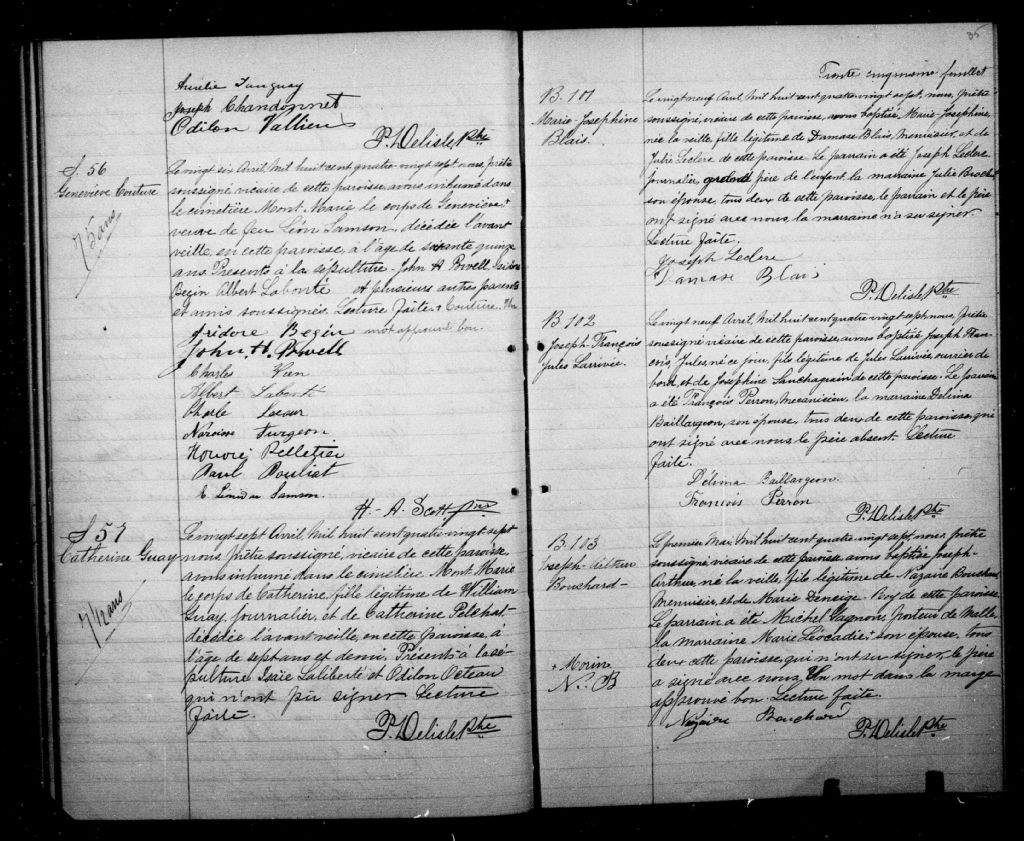 Aurelie Tanguay
Joseph Chandonnet
Odilon Vallieu
P. Delisle Ptre
S. 56
Geneviève Couture
75 ans
Le vingt six Avril, Mil huit cent quatre-vingt sept nous, prêtre
soussigné vicaire de cette paroisse, avons inhumé dans
le cimetière Mont Marie le corps de Geneviève +
veuve de feu Léon Samson, décédée l'avant
veille, en cette paroisse, à l'âge de soixante quinze
ans. Présents à la sépulture - John H Powell, Isidore
Begin Albert Labonté et plusieurs autres parents
et amis soussignés. Lecture faite. + Couture. Un
mot approuvé bon.
Isidore Begin
John. H. Powell
Charles Vien
Albert Labonté
Charle
Narcisse Turgeon
Honoré Pelletier
Paul Pouliot
Samson.
H. A. Scott ptre
S 57
Catherine Guay
7 1/2 ans
Le vingt sept Avril, Mil huit cent quatre vingt sept
nous, Prêtre soussigné, vicaire de cette paroisse
avons inhumé dans le cimetière Mont Marie
le corps de Catherine, fille légitime de William
Guay, journalier, et de Catherine Pelchat
décédée l'avant veille, en cette paroisse, à
l'âge de sept ans et demi. Présents à la sé-
pulture Isaïe Laliberté et Odilon Octeau
qui n'ont pu signer Lecture
faite.
P. Delisle Ptre
35
Trente cinquième feuillet
B. 101
Marie-Josephine
Blais.
Le vingt neuf Avril, Mil huit cent quatre-vingt sept, nous, prêtre
soussigné, vicaire de cette paroisse, avons baptisé Marie-Josephine,
née la veille, fille légitime de Damase Blais, Menuisier, et de
Julie Leclerc de cette paroisse. Le parrain a été Joseph Leclerc
journalier, grand père de l'enfant, la marraine Julie
son épouse, tous deux de cette paroisse, le parrain et le père
ont signé avec nous, la marraine n'a su signer
Lecture faite.
Joseph Leclerc
Damase Blais
P. Delisle Ptre
B. 102
Joseph-François
Jules Larrivée.
Le vingt neuf Avril, Mil huit cent quatre vingt sept, nous, Prêtre
soussigné vicaire de cette paroisse, avons baptisé Joseph Fran-
cois, Jules, né ce jour, fils légitime de Jules Larrivée ouvrier de
bord, et de Josephine Sanschagrin de cette paroisse. Le parrain
a été François Perron, Mécanicien, la marraine Delima
Baillargeon, son épouse, tous deux de cette paroisse, qui
ont signé avec nous, le père absent. Lecture
faite.
Délima Baillargeon
François Perron
P. Delisle Ptre
B. 103
Joseph-Arthur
Bouchard-
+ Morin
N. B
Le premier Mai, Mil huit cent quatre-vingt sept, nous, prêtre
soussigné, vicaire de cette paroisse, avons baptisé Joseph-
Arthur, né la veille, fils légitime de Nazaire Bouchard,
Menuisier, et de Marie Deneige Roy de cette paroisse.
Le parrain a été Michel Gagnon, porteur de Malle
la marraine Marie Léocadie + son épouse, tous
deux cette paroisse, qui n'ont su signer, le père
a signé avec nous. Un mot dans la marge
approuvé bon. Lecture faite.
Nazaire Bouchard
P. Delisle Ptre